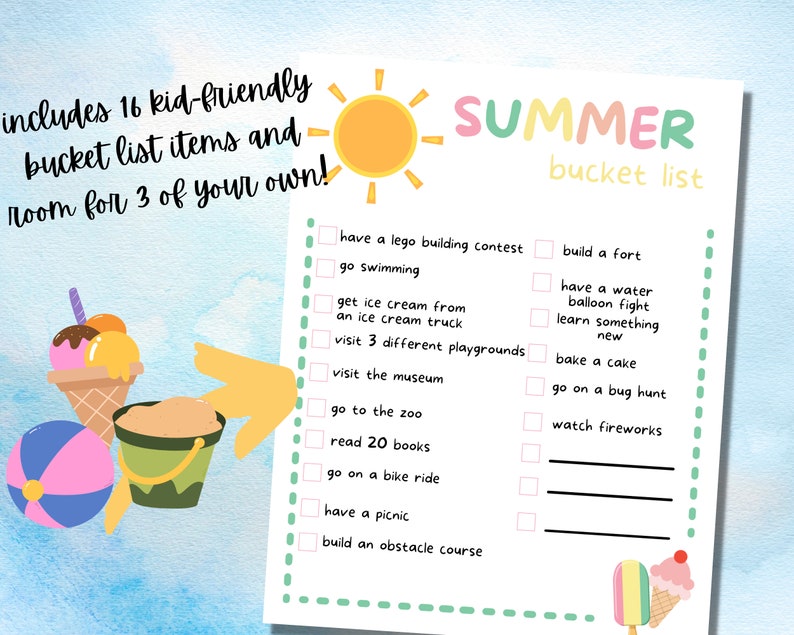 includes 16 kid-friendly
bucket list items and
room for 3 of your own!
SUMMER
bucket list
have a lego building contest
go swimming
get ice cream from
an ice cream truck
visit 3 different playgrounds
visit the museum
go to the zoo
read 20 books
go on a bike ride
have a picnic
build an obstacle course
build a fort
have a water
balloon fight
learn something
new
bake a cake
go on a bug hunt
watch fireworks